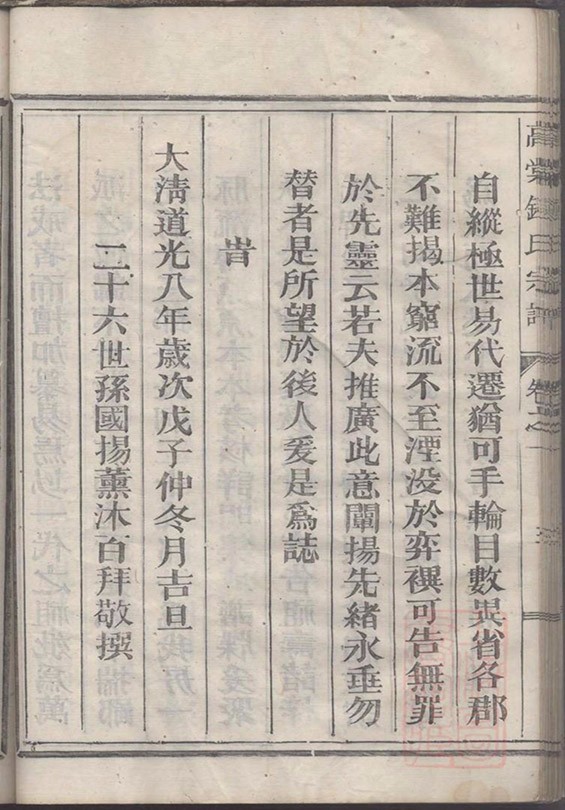 自縱極世易代遷猶可手輪目數異省各郡
不難揭本窮流不至湮没於弈禩可告無罪
於先靈云若夫推廣此意闡揚先緒永垂勿
替者是所望於後人爰是爲誌
旹
大淸道光八年歲次戊子仲冬月吉旦
二十六世孫國揚薰沐百拜敬撰
鍾氏宗譜
卷之一